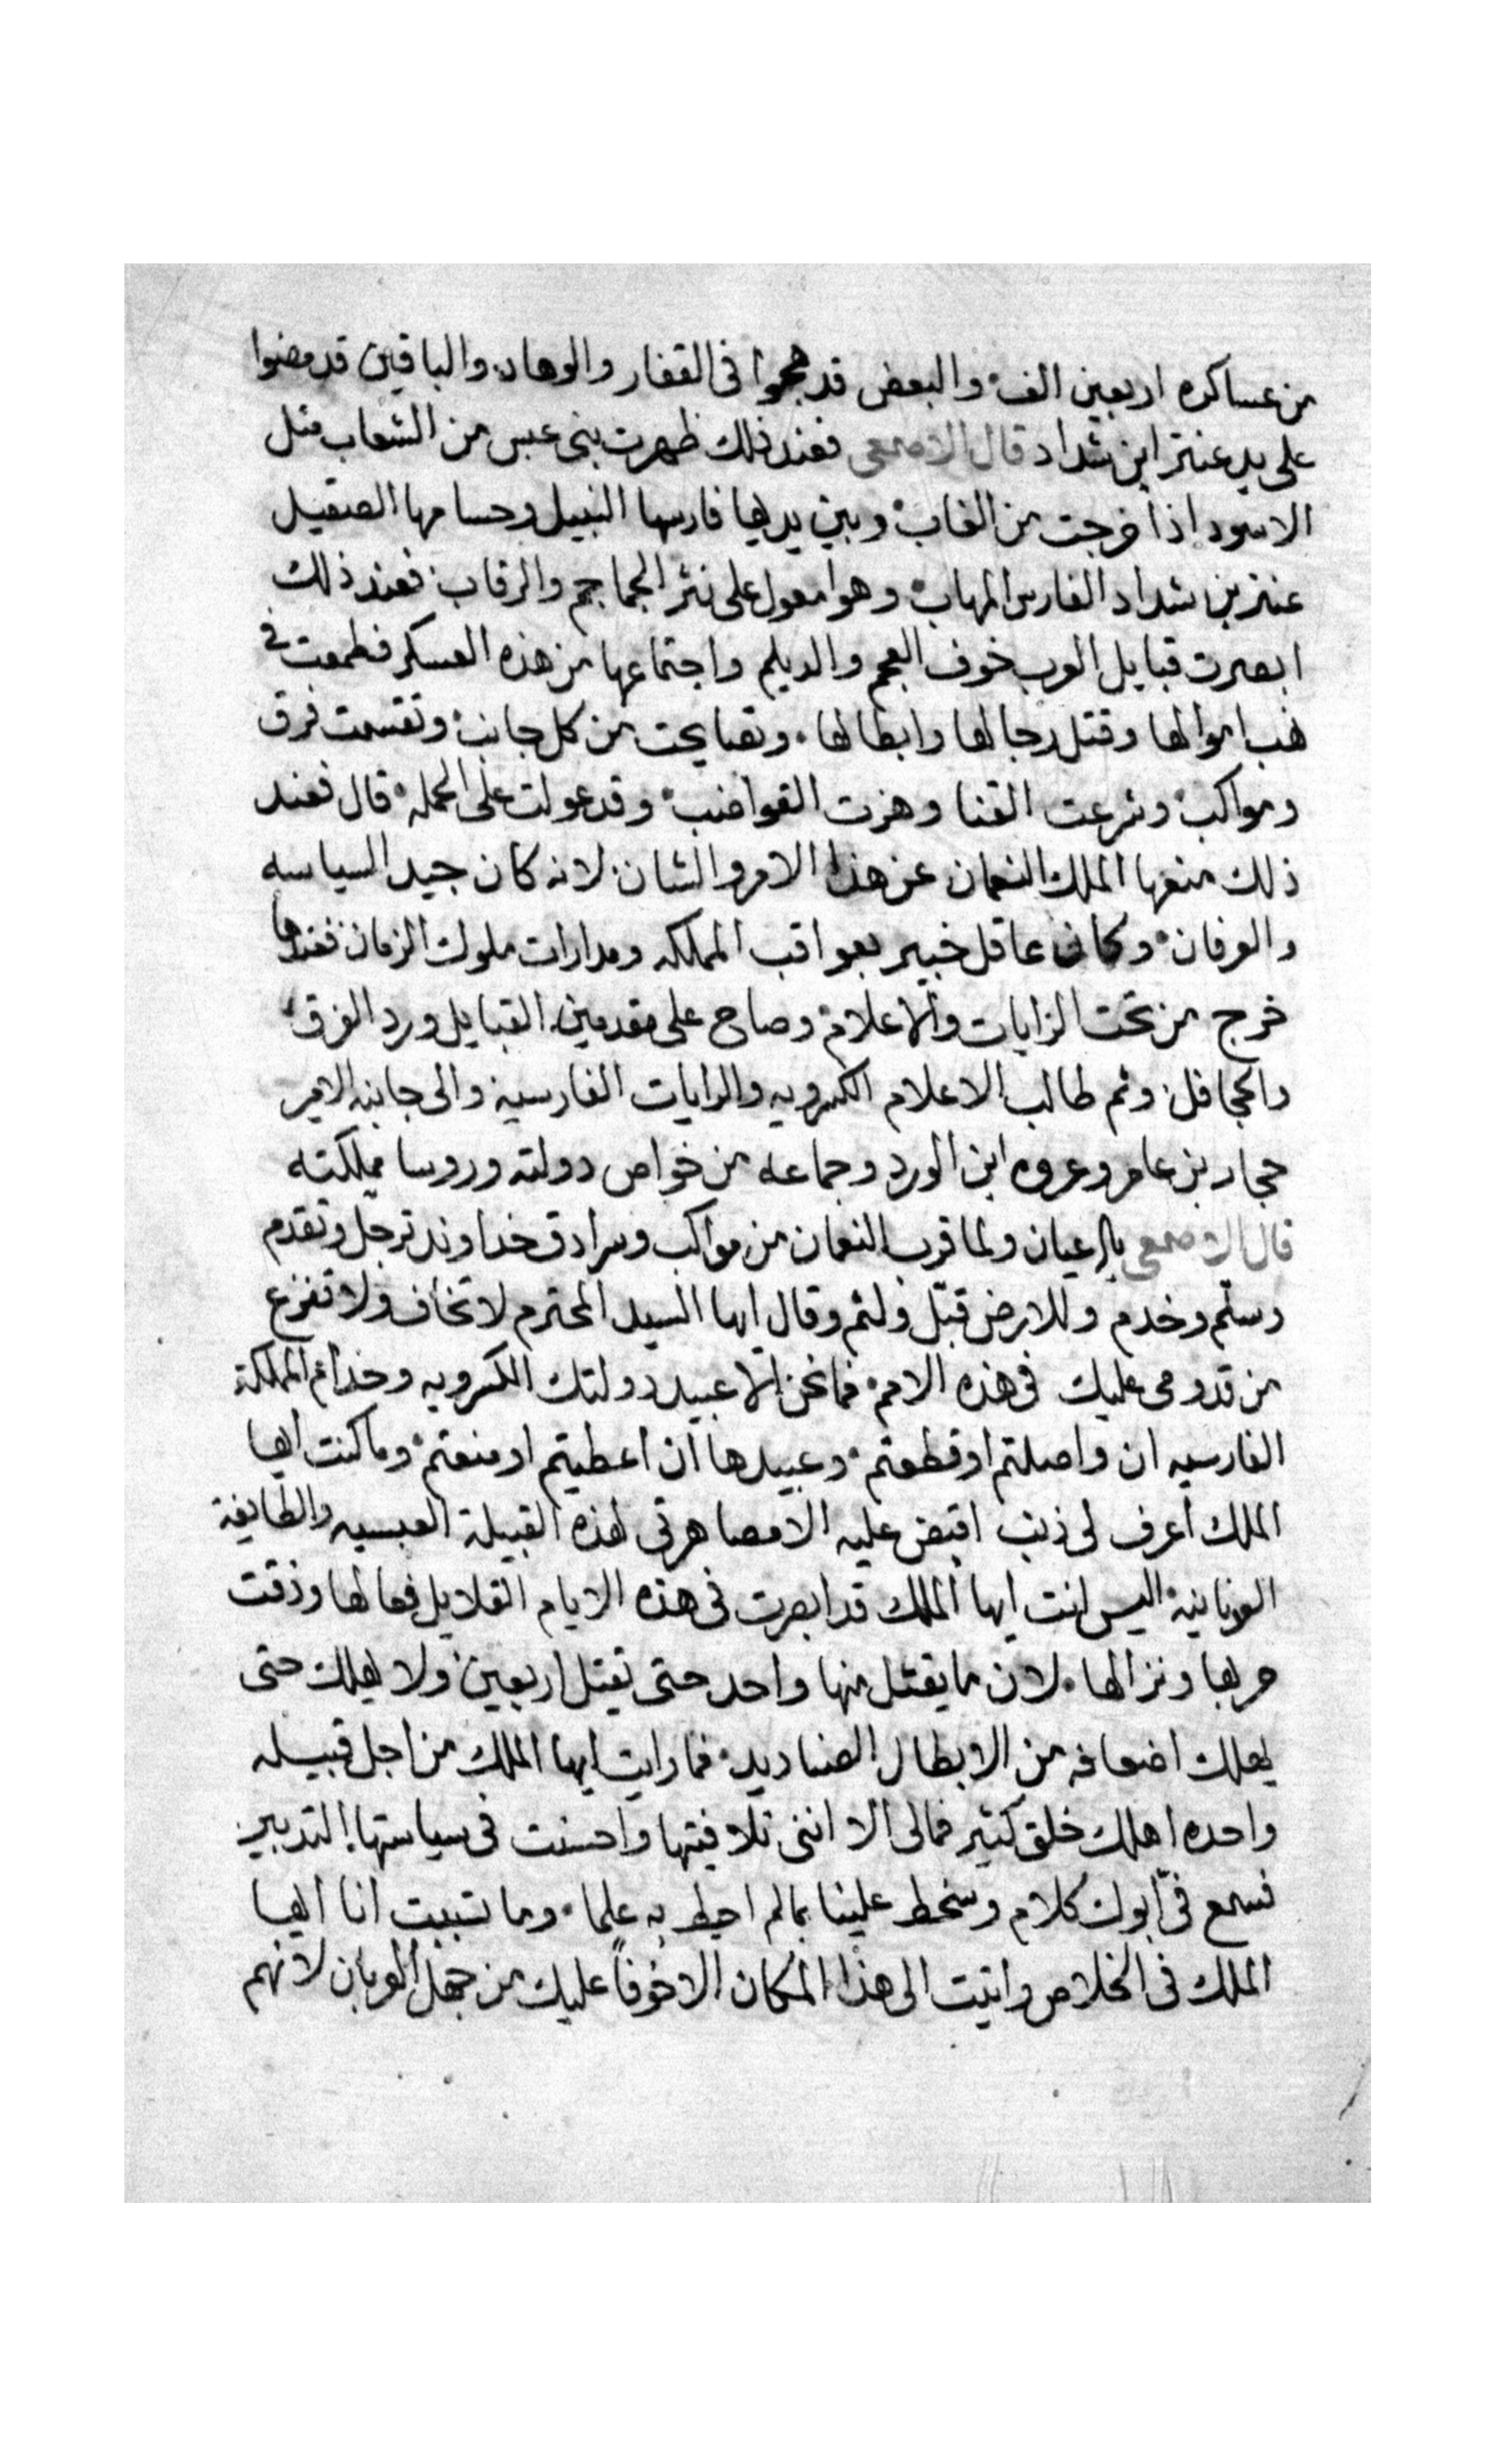 من عساكره اربعين الف والبعض قد هجوا فى القفار والوهاد والباقين قد مضوا
على يد عنتر ابن شداد قال الاصمعى فعند ذلك ظهرت بنى عبس من الشعاب مثل
الاسود اذا خرجت من الغاب وبين يديها فارسها النبيل وحسامها الصقيل
عنتر بن شداد الفارس المهاب وهوا معول على نثر الجماجم والرقاب فعند ذلك
ابصرت قبايل العرب خوف العجم والديلم واجتماعها من هذه العسكر فطمعت فى
نهب اموالها وقتل رجالها وابطالها وتصايحت من كل جانب وتقسمت فرق
ومواكب وشرعت القنا وهزت القواضب وقد عولت على الحمله قال فعند
ذلك منعها الملك النعمان عن هذا الامر والشان لانه كان جيد السياسه
والعرفان وكان عاقل خبير بعواقب المملكه ومدارات ملوك الزمان فعندها
خرج من تحت الرايات والاعلام وصاح على مقدمين القبايل ورد الفرق
والجحافل وثم طالب الاعلام الكسرويه والرايات الفارسية والى جانبه الامير
حجار بن عامر وعروه ابن الورد وجماعه من خواص دولته وروسا مملكته
قال الاصمعى ولما قرب النعمان من مواكب وسرادق خداوند ترجل وتقدم
وسلم وخدم وللارض قبّل ولثم وقال ايها السيد المحترم لا تخاف ولا تفزع
من قدومى عليك فى هذه الامم فما نحن الا عبيد دولتك الكسرويه وخدام المملكة
الفارسيه ان واصلتم او قطعتم وعبيدها ان اعطيتم او منعتم وما كنت ايها
الملك اعرف لى ذنب اقبض عليه الا مصاهرتى لهذه القبيلة العبسيه والطايفة
العدنانية اليس انت ايها الملك قد ابصرت فى هذه الايام القلايل فعالها وذقت
حربها ونزالها لان ما يقتل منها واحد حتى تقتل اربعين ولا يهلك حتى
يهلك اضعافه من الابطال الصناديد فما رايت ايها الملك من اجل قبيله
واحده اهلك خلق كثير فمالى الا اننى تلافيتها واحسنت فى سياستها التدبير
فسمع فىّ ابوك كلام وسخط علينا بما لم احيط به علما وما تسببت انا ايها
الملك فى الخلاص واتيت الى هذا المكان الا خوفاً عليك من جهل العربان لانهم